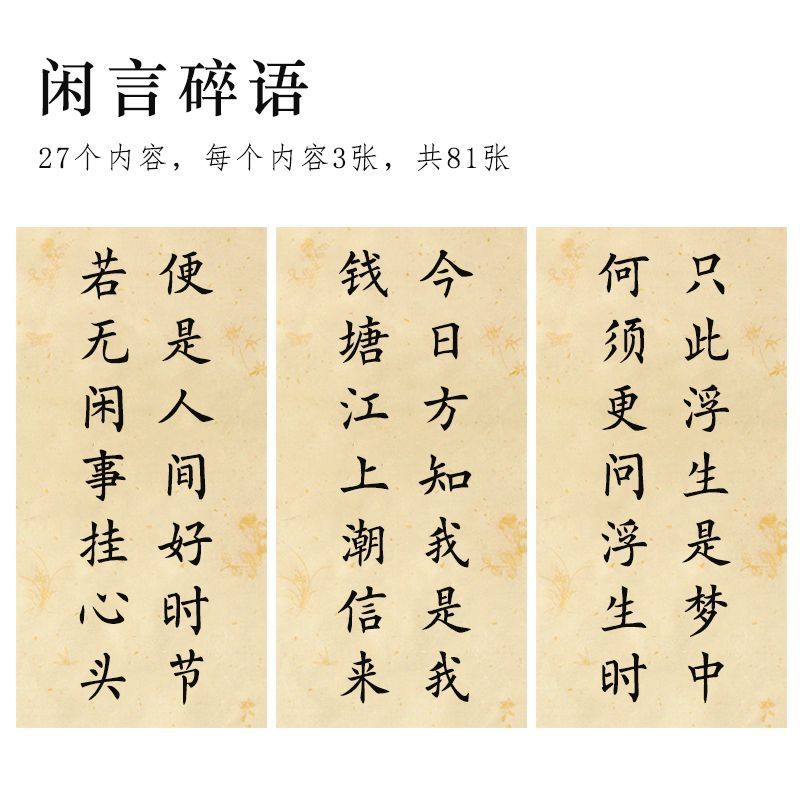 闲言碎语
27个内容，每个内容3张，共81张
若无闲事挂心头
便是人间好时节
钱塘江上潮信来
今日方知我是我
何须更问浮生时
只此浮生是梦中